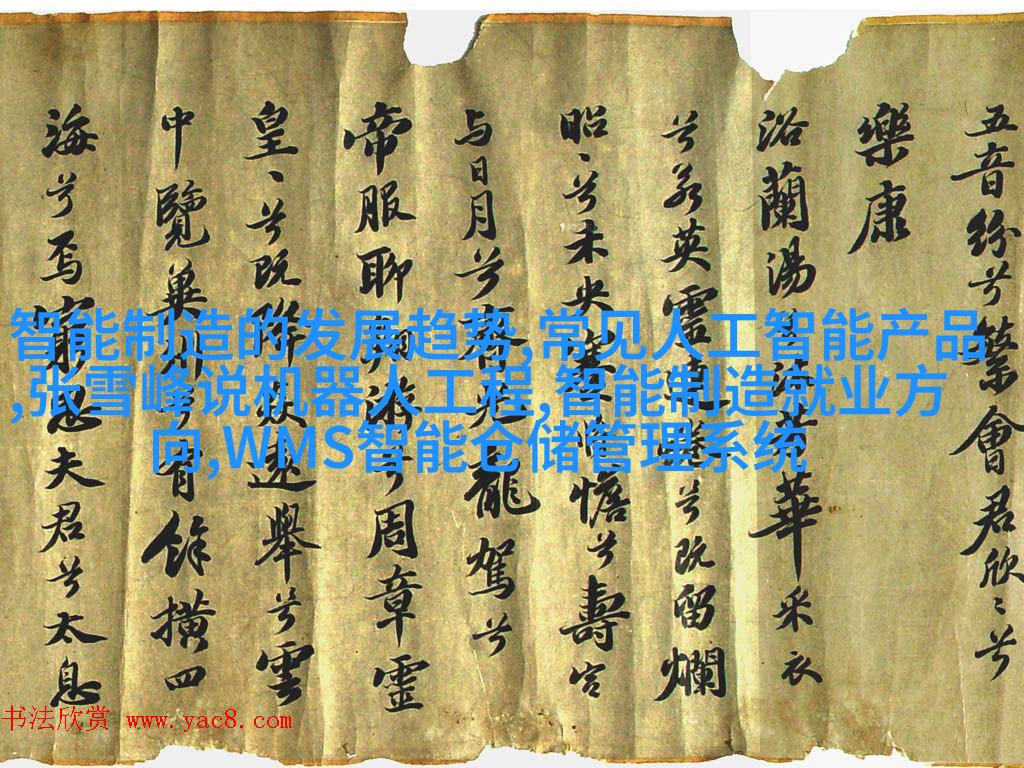 五音紛兮繁會君欣〻兮
樂康
浴蘭湯兮沐芳華采衣
兮若英靈連蜷兮既留爛
昭〻兮未央蹇憺兮壽宮
与日月兮齊光龍駕兮
帝服聊翱游兮周章靈
皇〻兮既降猋遠舉兮雲
中覽冀州兮有餘橫四
海兮焉窮思夫君兮太息
智能制造的发展趋势,常见人工智能产品
,张雪峰说机器人工程,智能制造就业方
向,WMS智能仓储管理系统
书法欣赏 www.yac8.com